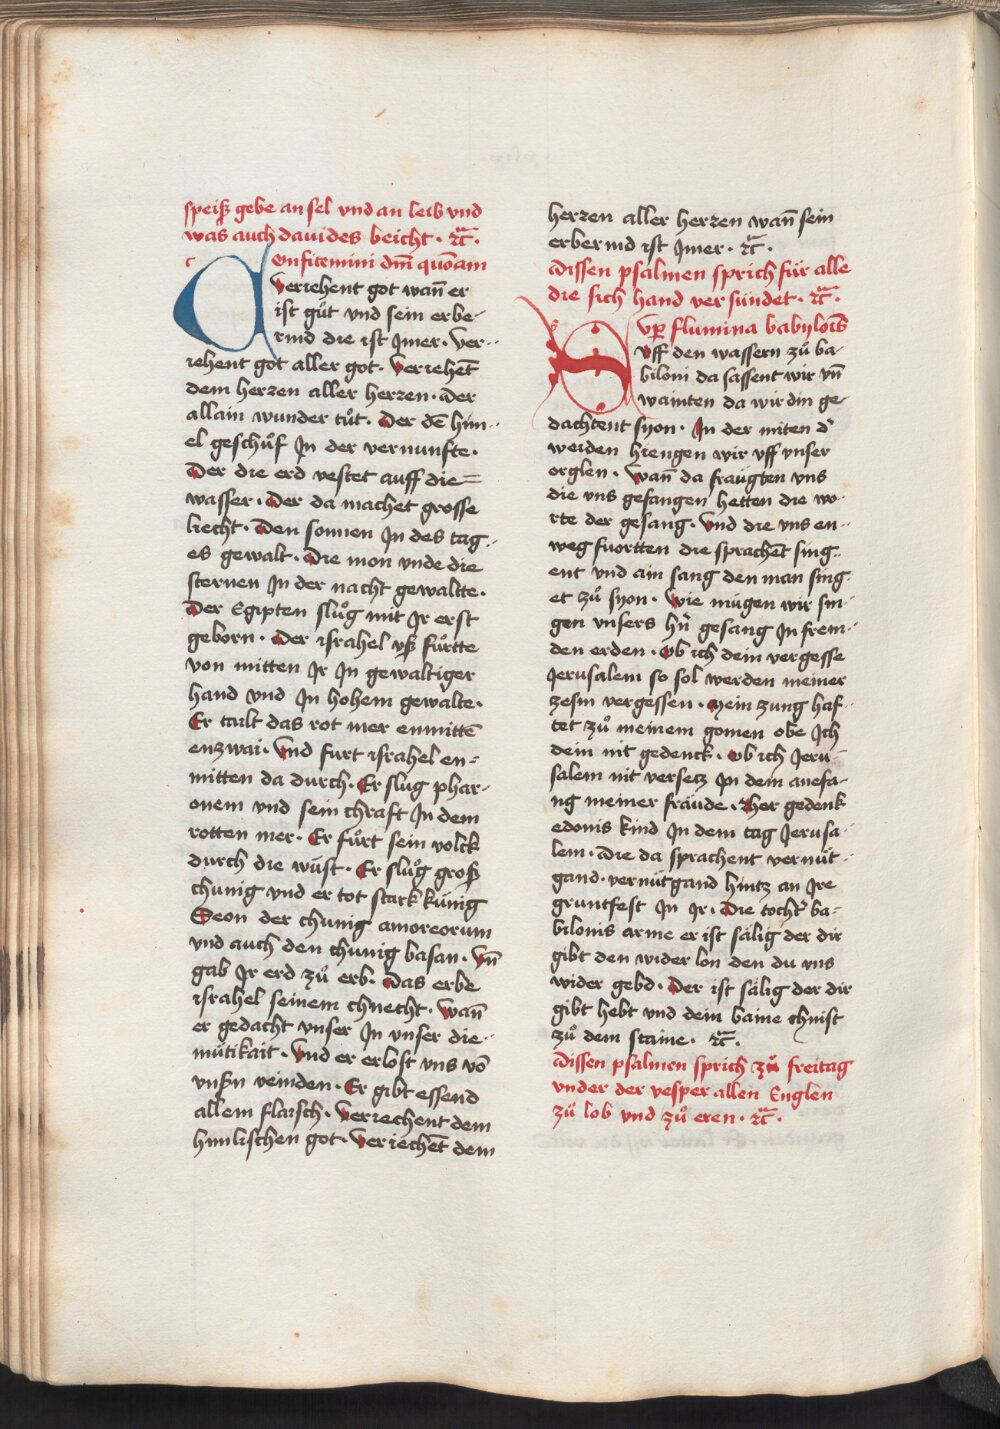 speiß gebe an sel vnd an leib vnd
was auch dauides beicht · ꝛc̄ ·
Confitemini dm̄ quōam
Veriehent got wañ er
ist gůt vnd sein erbe-
rmd die ist Jmer · Ver-
iehent got aller got · Veriehēt
dem herzen aller herzen · Der
allain wunder tůt · Der dē him-
el geschůf Jn der vernunfte ·
Der die erd vestet auff die=
wasser · Der da machet grosse
liecht · Den sonnen Jn des tag-
es gewalt · Die mon vnde die
sternen Jn der nacht gewaltte ·
Der Egipten slůg mit Jr erst
geborn · Der israhel vß fůrtte
von mitten Jr Jn gewaltiger
hand vnd Jn hohem gewalte ·
Er tailt das rot mer enmittē
enzwai · Vnd furt israhel en=
mitten da durch · Er slug phar-
onem vnd sein chraft Jn dem
rotten mer · Er fůrt sein volck
durch die wůst · Er slůg groß
chunig vnd er tot starck kúnig
Seon der chunig amoreorum
vnd auch den chunig basan · Vn̄
gab Jr erd zů erb · Das erbe
israhel seinem chnecht · Wañ
er gedacht vnser Jn vnser die-
můtikait · Vnd er erlost vns vō
vnsn̄ veinden · Er gibt essend
allem flaisch · Verriechent dem
himlischen got · Veriechēt dem
herzen aller herzen wañ sein
erbermd ist Jmer · ꝛc̄ ·
Dissen psalmen sprich fúr alle
die sich hand versúndet · ꝛc̄ ·
Sup̱ flumina babylois̄
Vff den wassern zů ba-
biloni da sassent wir vn̄
wainten da wir din ge-
dachtent syon · Jn der miten d'
weiden hiengen wir vff vnser
orglen · Wañ da fraugten vns
die vns gefangen hetten die wo-
rte der gesang · Vnd die vns en-
weg fuortten die sprachēt sing-
ent vnd ain sang den man sing-
et zů syon · Wie múgen wir sin-
gen vnsers hr̄n gesang Jn frem-
den erden · Ob ich dein vergesse
Jerusalem so sol werden meiner
zesm vergessen · Mein zung haf-
tet zů meinem gomen obe Jch
dein nit gedenck · Ob ich Jeru-
salem nit versetz Jn dem anefa-
ng meiner fräude · Her gedenk
edonis kind Jn dem tag Jerusa-
lem · Die da sprachent vernút-
gand · vernútgand hintz an Jre
gruntfest Jn Jr · Die tocht' ba=
bilonis arme er ist sälig der dir
gibt den wider lon den du vns
wider gebd · Der ist sälig der dir
gibt hebt vnd dein baine chnist
zů dem staine · ꝛc̄ ·
Dissen psalmen sprich zů freitag
vnder der vesper allen Englen
zů lob vnd zů eren · ꝛc̄ ·